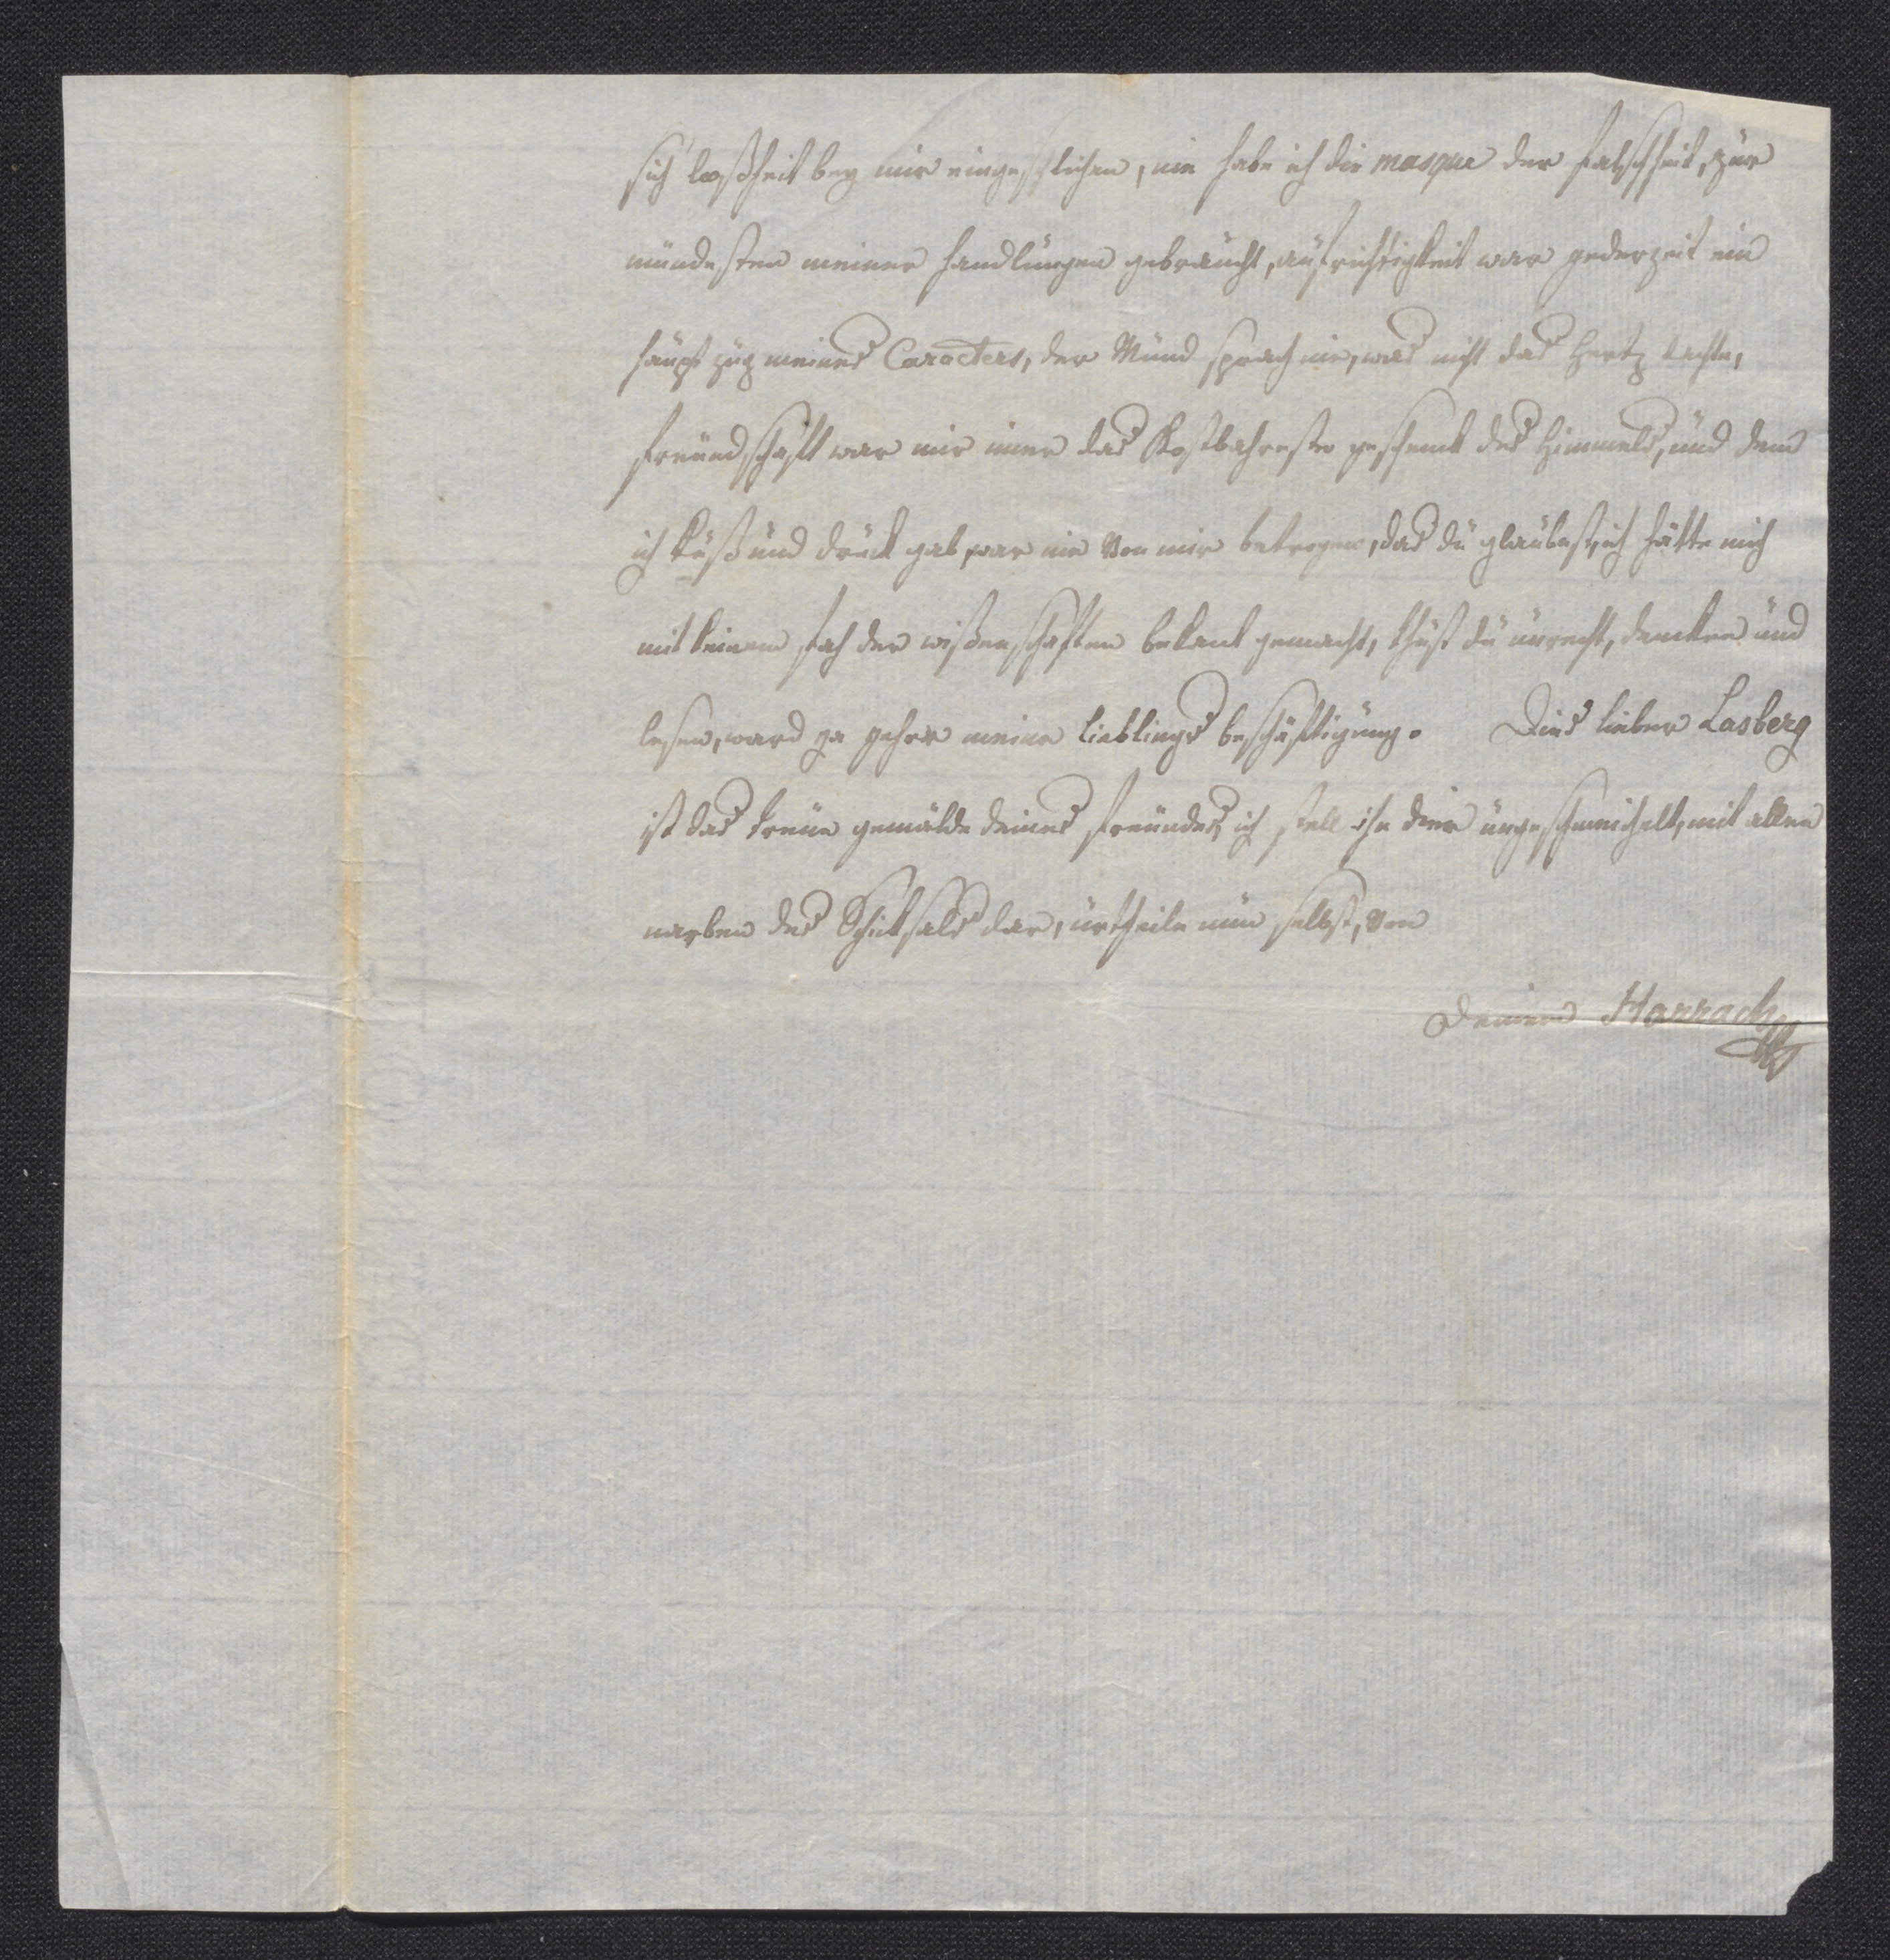 sich boßheit bey mir eingeschlichen, nie habe ich die masque der falschheit, zur
mündesten meiner handlungen gebraucht, aufrichtigkeit war jederzeit ein
haupt zug meines Caracters, der Mund sprach nie, was nicht das Hertz dachte,
freundschaft war mir imer das Kostbahreste geschenck des Himmels, und dem
ich kuß und druck gab, war nie Von mir betrogen, das du glaubest, ich hätte mich
mit keinem fach der wißenschaften bekant gemacht, thust du unrecht, dencken und
lesen, ward ja jeher meine lieblings beschäftigung. Dies lieber Lasberg
ist das treue gemälde deines freundes, ich stell ihn dier ungeschmeichelt, mit allen
narben des Schicksals dar, urtheile nun selbst, Von
Deinem Harrach